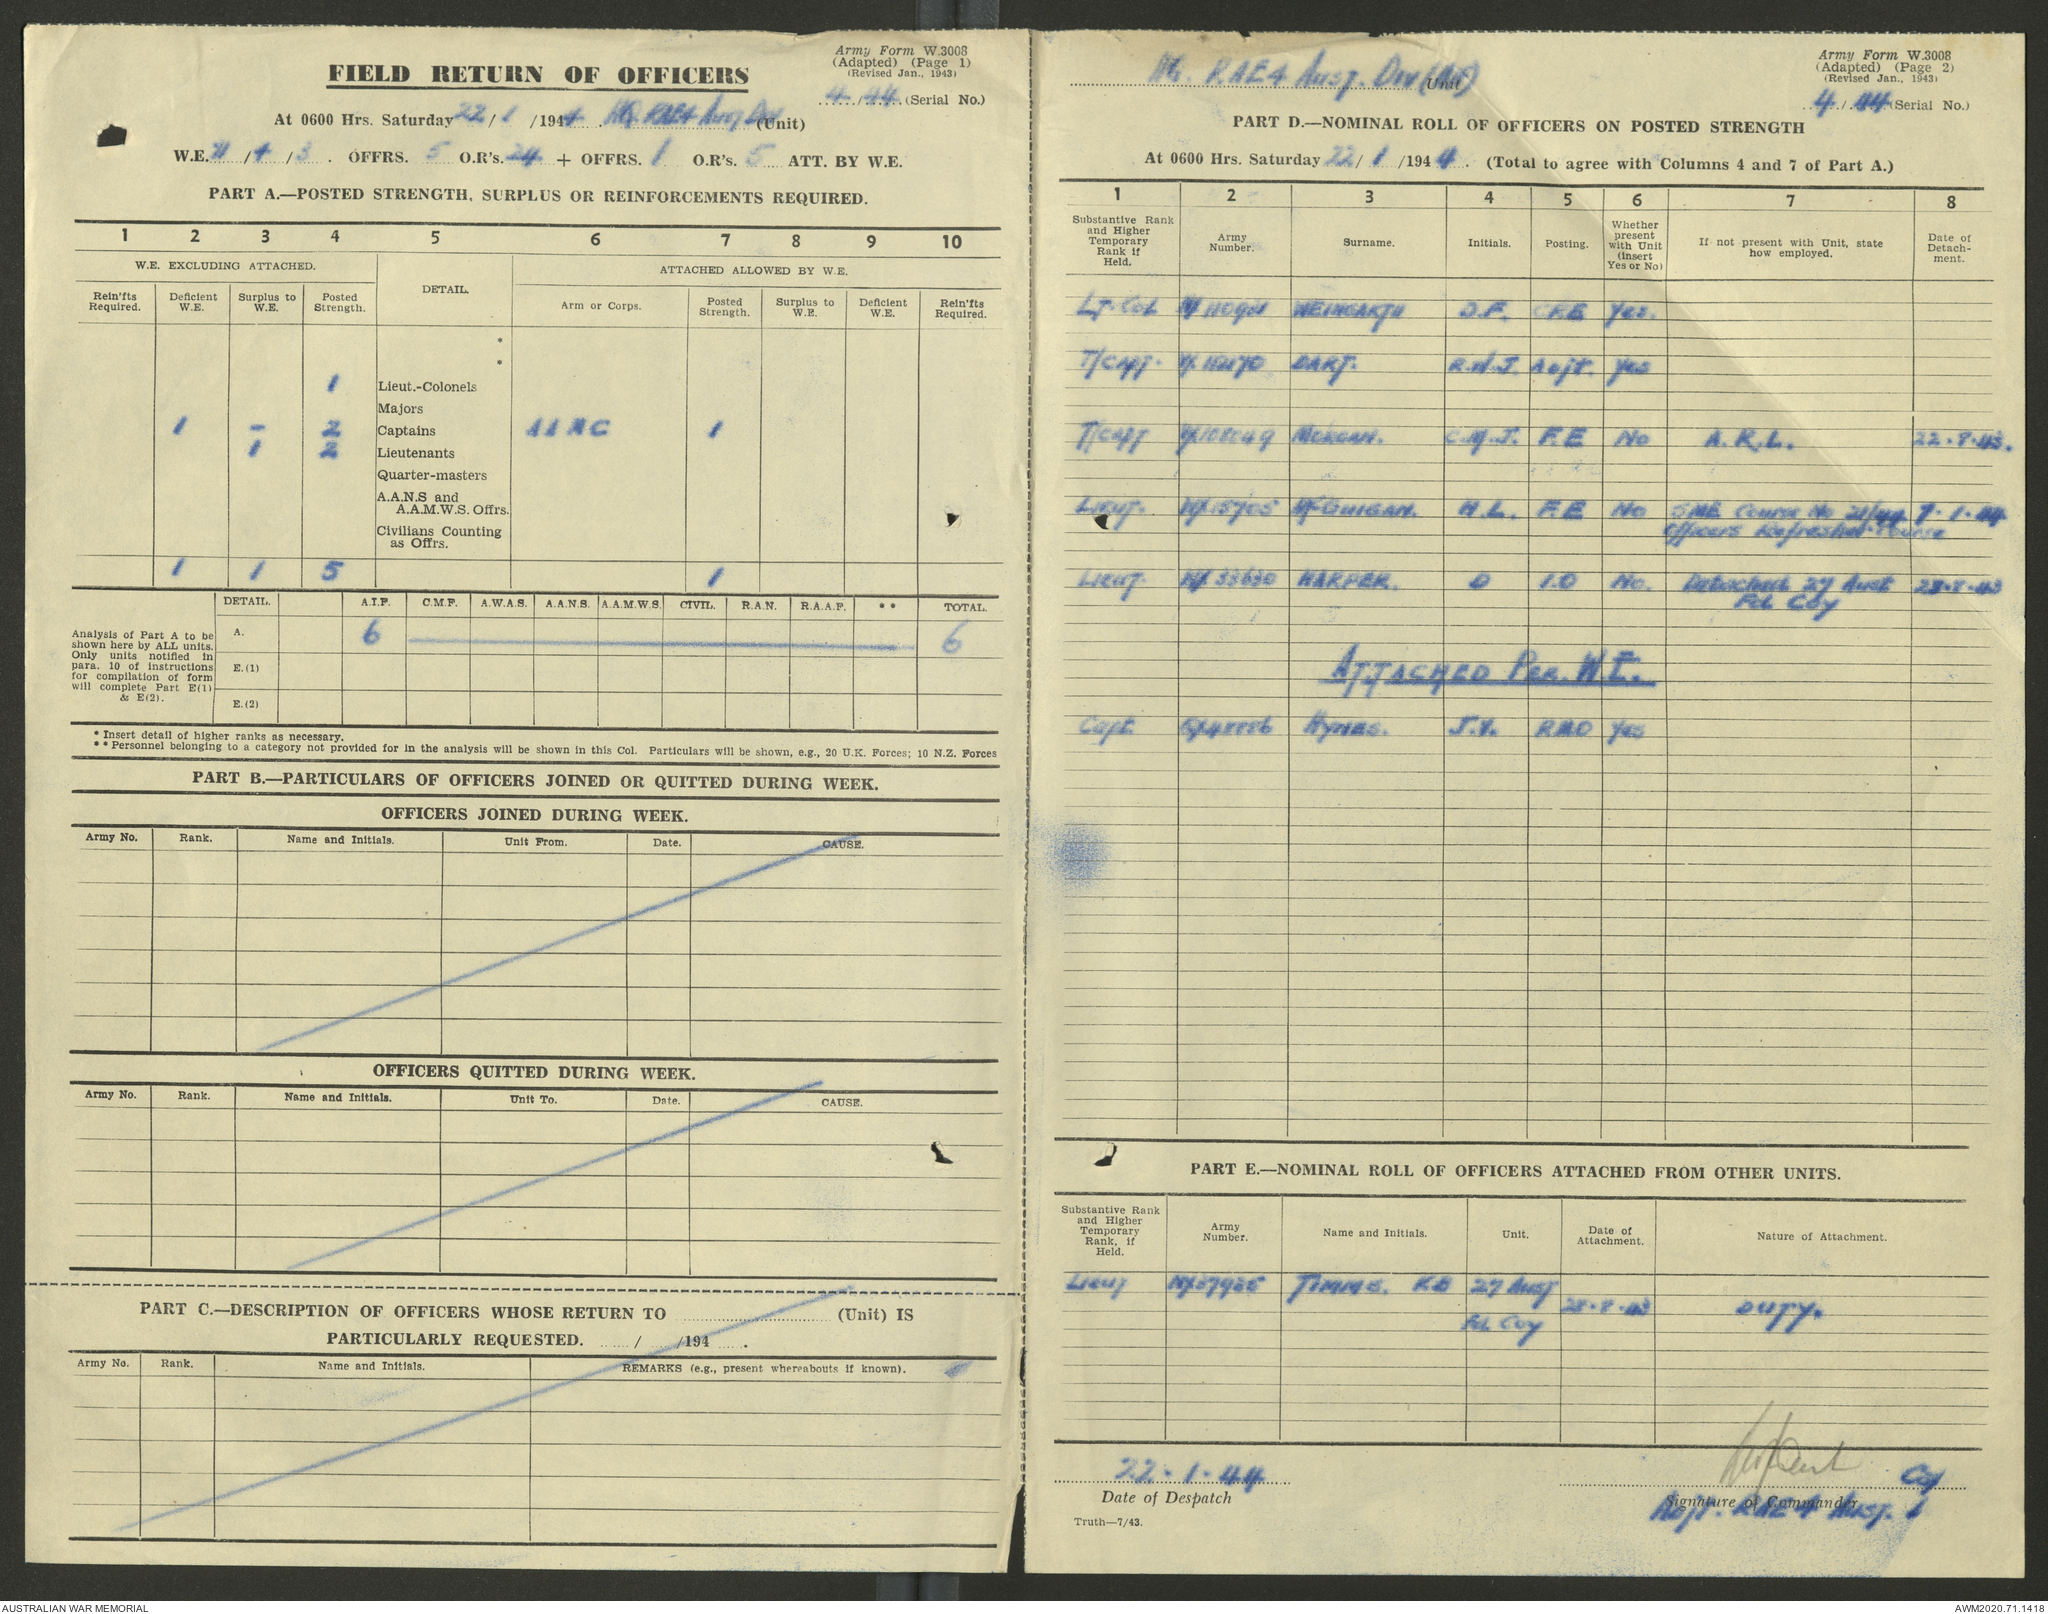 Army Form W.3008
(Adapted) (Page 1)
(Revised Jan., 1943)
FIELD RETURN OF OFFICERS
4/44 (Serial No.)
At 0600 Hrs. Saturday 22/1/1944. HQ. RAE 4 Aust Div (Unit)
W.E. /4/3. OFFRS. 5 O.R's. 24 + OFFRS. 1 O.R's. 5 ATT. BY W.E.
PART A.—POSTED STRENGTH, SURPLUS OR REINFORCEMENTS REQUIRED.
1 2 3 4 5 6 7 8 9 10
W.E. EXCLUDING ATTACHED. DETAIL. ATTACHED ALLOWED BY W.E.
Rein'fts Required. Deficient W.E. Surplus to W.E. Posted Strength. Arm or Corps. Posted Strength. Surplus to W.E. Deficient W.E. Rein'fts Required.
*
*
1 Lieut.-Colonels
Majors
1 - 2 Captains A A M C 1
1 2 Lieutenants
Quarter-masters
A.A.N.S and
A.A.M.W.S. Offrs.
Civilians Counting
as Offrs.
1 1 5 1
DETAIL. A.I.F. C.M.F. A.W.A.S. A.A.N.S. A.A.M.W.S. CIVIL. R.A.N. R.A.A.F. ** TOTAL.
Analysis of Part A to be
shown here by ALL units.
Only units notified in
para. 10 of instructions
for compilation of form
will complete Part E(1)
& E(2).
A. 6 6
E.(1)
E.(2)
* Insert detail of higher ranks as necessary.
** Personnel belonging to a category not provided for in the analysis will be shown in this Col. Particulars will be shown, e.g., 20 U.K. Forces; 10 N.Z. Forces
PART B.—PARTICULARS OF OFFICERS JOINED OR QUITTED DURING WEEK.
OFFICERS JOINED DURING WEEK.
Army No. Rank. Name and Initials. Unit From. Date. CAUSE.
OFFICERS QUITTED DURING WEEK.
Army No. Rank. Name and Initials. Unit To. Date. CAUSE.
PART C.—DESCRIPTION OF OFFICERS WHOSE RETURN TO (Unit) IS
PARTICULARLY REQUESTED. / /194 .
Army No. Rank. Name and Initials. REMARKS (e.g., present whereabouts if known).
Army Form W.3008
(Adapted) (Page 2)
(Revised Jan., 1943)
HQ. RAE 4 Aust. Div (Unit)
4/44 (Serial No.)
PART D.—NOMINAL ROLL OF OFFICERS ON POSTED STRENGTH
At 0600 Hrs. Saturday 22/1/1944. (Total to agree with Columns 4 and 7 of Part A.)
1 2 3 4 5 6 7 8
Substantive Rank and Higher Temporary Rank if Held. Army Number. Surname. Initials. Posting. Whether present with Unit (insert Yes or No) If not present with Unit, state how employed. Date of Detachment.
Lt-Col WEINGARTH D.F. CRE Yes.
T/Capt. DART. R.W.J. Adjt. Yes
T/Capt MORGAN. C.M.J. F.E No A.R.L. 22.8.43.
Lieut. McGUIGAN. H.L. F.E No SME Course No 21/44 7.1.44
Officers Refresher Course
Lieut. HARPER. D I.O No. Detached 27 Aust 28.8.43
Fd Coy
ATTACHED PER. W.E.
Capt. HYMAS. J.V. RMO Yes
PART E.—NOMINAL ROLL OF OFFICERS ATTACHED FROM OTHER UNITS.
Substantive Rank and Higher Temporary Rank, if Held. Army Number. Name and Initials. Unit. Date of Attachment. Nature of Attachment.
Lieut TIMMS. 27 Aust 28.8.43 DUTY.
Fd. Coy
22.1.44
Date of Despatch
Signature of Commander
Adjt. RAE 4 Aust.
Truth—7/43.
AUSTRALIAN WAR MEMORIAL
AWM2020.71.1418